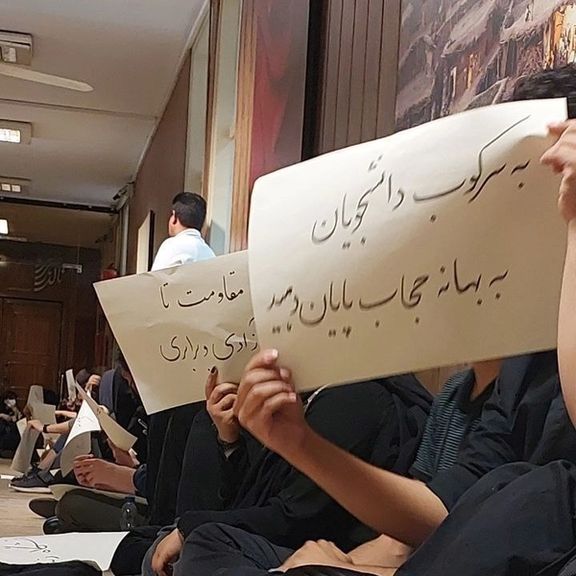 به سرکوب دانشجویان
به بهانه حجاب پایان دهید
مقاومت تا
آزادی و برابری